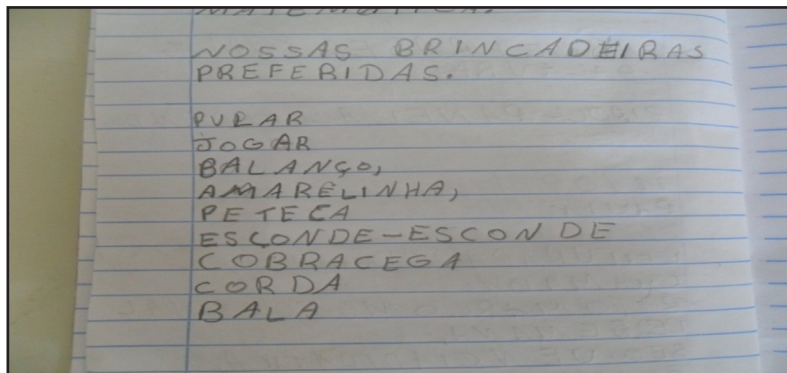 MATEMÁTICA.
NOSSAS BRINCADEIRAS
PREFERIDAS.
PULAR
JOGAR
BALANÇO,
AMARELINHA,
PETECA
ESCONDE-ESCONDE
COBRACEGA
CORDA
BALA